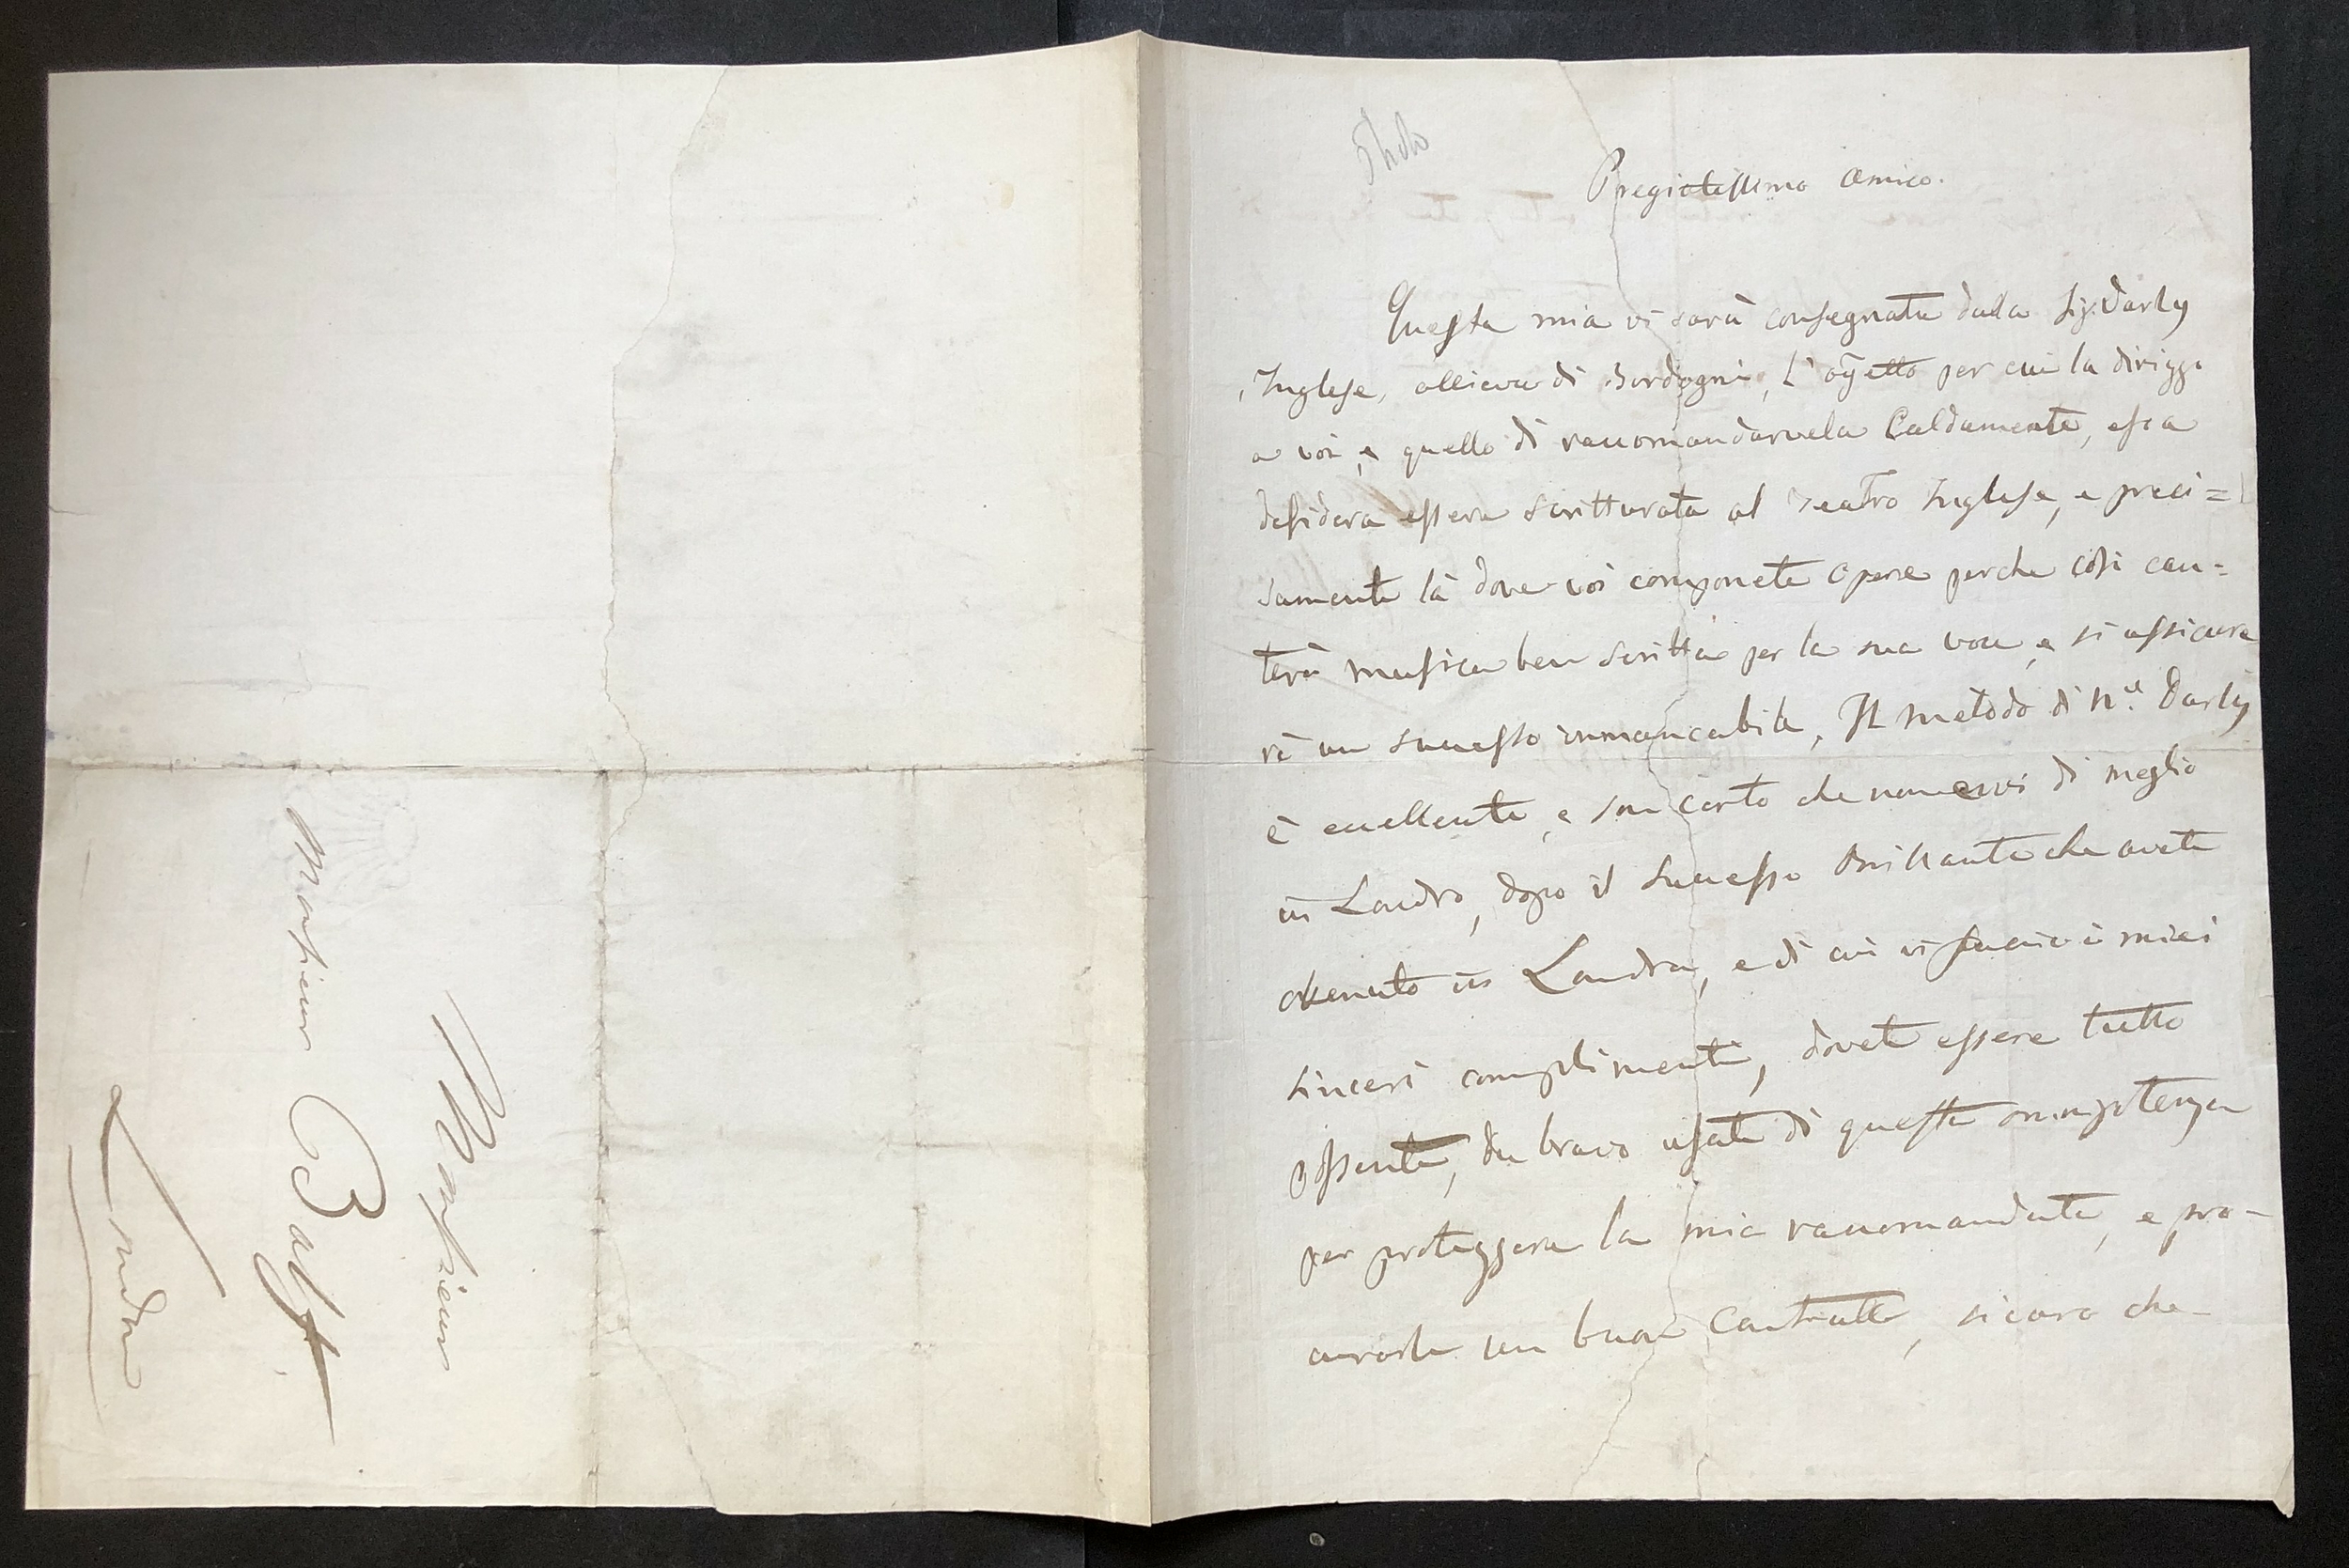 Monsieur
Monsieur Balfe
Londra
Photo
Pregiatissimo amico.
Questa mia vi sarà consegnata dalla Sig. Darley
Inglese, allieva di Bordogni, L'oggetto per cui la diriggo
a voi, è quello di raccomandarvela Caldamente, essa
desidera essere scritturata al Teatro Inglese, e preci=
samente là dove voi componete opere perche così can=
terà musica ben scritta per la sua voce, e si assicure
rà un successo immancabile, Il metodo di M.ll Darley
è eccellente, e son certo che non evvi di meglio
in Londra, dopo il successo brillante che avete
ottenuto in Londra, e di cui vi faccio i miei
sinceri complimenti, dovete essere tutto
possente, da bravo usate di questa omnipotenza
per proteggere la mia raccomandata, e pro-
curarle un buon Contratto, sicuro che